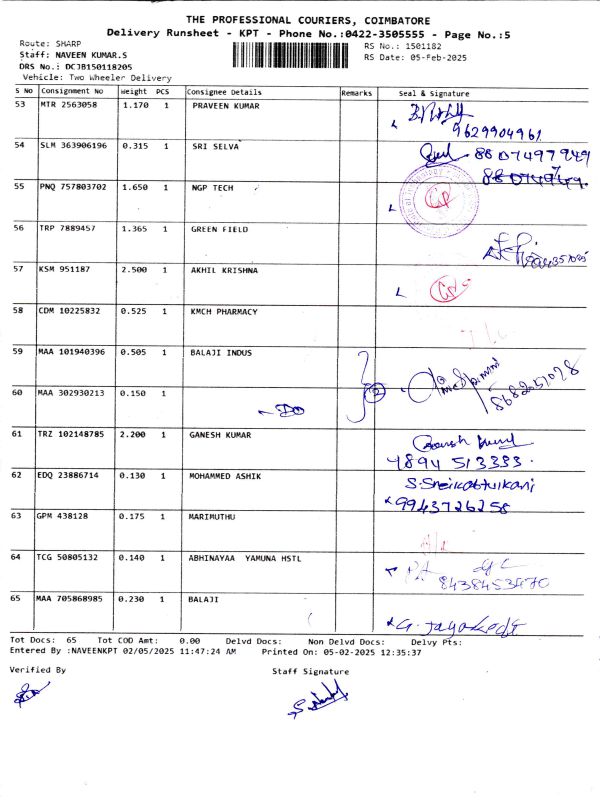 THE PROFESSIONAL COURIERS, COIMBATORE
Delivery Runsheet - KPT - Phone No.:0422-3505555 - Page No.:5
Route: SHARP
RS No.: 1501182
Staff: NAVEEN KUMAR.S
RS Date: 05-Feb-2025
DRS No.: DCJB150118205
Vehicle: Two Wheeler Delivery
S No Consignment No Weight PCS Consignee Details Remarks Seal & Signature
53 MTR 2563058 1.170 1 PRAVEEN KUMAR
9629904961
54 SLM 363906196 0.315 1 SRI SELVA
8807497949
55 PNQ 757803702 1.650 1 NGP TECH
56 TRP 7889457 1.365 1 GREEN FIELD
57 KSM 951187 2.500 1 AKHIL KRISHNA
58 CDM 10225832 0.525 1 KMCH PHARMACY
59 MAA 101940396 0.505 1 BALAJI INDUS
2
8682051028
60 MAA 302930213 0.150 1 - DO
61 TRZ 102148785 2.200 1 GANESH KUMAR
Ganesh Kumar
4894 513333.
62 EDQ 23886714 0.130 1 MOHAMMED ASHIK
9943726258
63 GPM 438128 0.175 1 MARIMUTHU
64 TCG 50805132 0.140 1 ABHINAYAA YAMUNA HSTL
8438453470
65 MAA 705868985 0.230 1 BALAJI
Tot Docs: 65 Tot COD Amt: 0.00 Delvd Docs: Non Delvd Docs: Delvy Pts:
Entered By :NAVEENKPT 02/05/2025 11:47:24 AM Printed On: 05-02-2025 12:35:37
Verified By Staff Signature